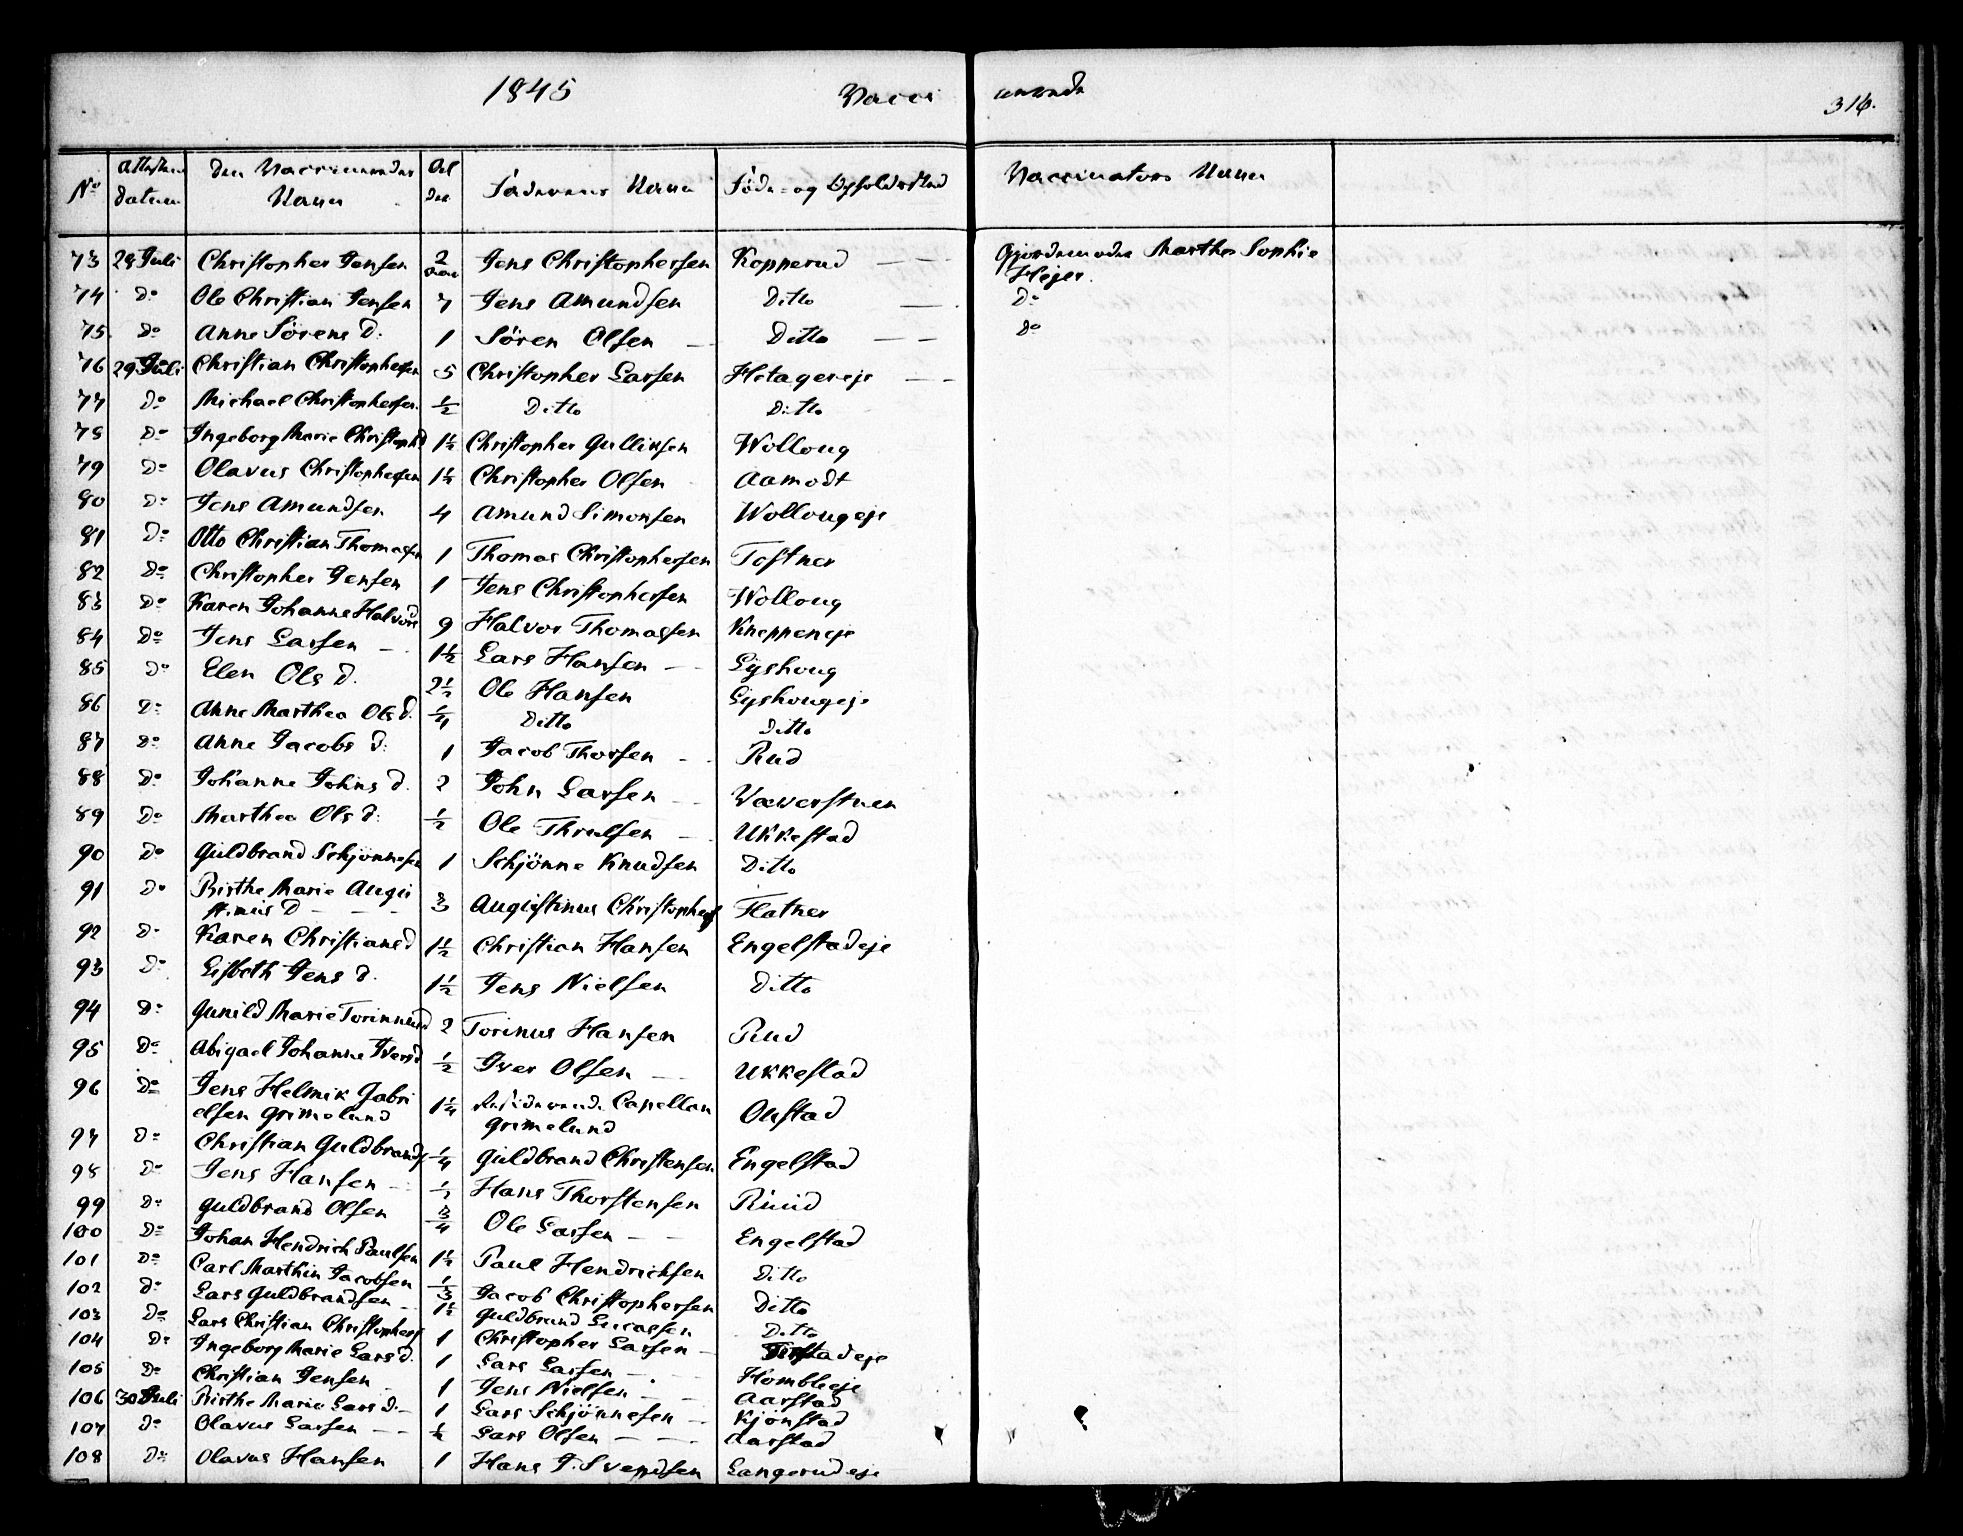 1845 Vacci nerede 316.
No Attestens Datum Den Vaccineredes Navn Alder Faderens Navn Føde- og Opholdssted Vaccinators Navn
73 28 Juli Christopher Jensen 2 Jens Christophersen Kopperud — — — Gjordemoder Marthe Sophie
Høyer.
74 Do Ole Christian Jensen 7 Jens Amundsen Ditto — Do
75 Do Anne Sørens d. 1 Sören Olsen — Ditto — — Do
76 29 Juli Christian Christophersen 5 Christopher Larsen — —
77 Do Michael Christophersen 1/2 Ditto Ditto
78 Do Ingeborg Marie Christoph d 1 1/2 Christopher Gulliksen Wolloug
79 Do Olavus Christophersen 1 1/2 Christopher Olsen Aamodt
80 Do Jens Amundsen 4 Amund Simonsen Wollougeje
81 Do Otto Christian Thomassen 1 Thomas Christophersen Tostner
82 Do Christopher Jensen 1 Jens Christophersen Wolloug
83 Do Karen Johanne Halvors d 9 Halvor Thomassen Kneppeneje
84 Do Jens Larsen — 1 1/2 Lars Hansen — — Lyshoug
85 Do Elen Ols d. 2 1/2 Ole Hansen Lyshougeje
86 Do Anne Marthea Ols d. 1/4 Ditto Ditto
87 Do Anne Jacobs d: 1 Jacob Thorsen — Rud
88 Do Johanne Johns d. 2 John Larsen — Wæverstuen
89 Do Marthea Ols d: 1/2 Ole Thrulsen — Ukkestad
90 Do Guldbrand Schjønnesen 1 Schjönne Knudsen Ditto
91 Do Birthe Marie Augu
stinus D — — — 3 Augustinus Christophers Flatner
92 Do Karen Christians d 1 1/2 Christian Hansen Engelstadeje
93 Do Lisbeth Jens d. 1 1/2 Jens Nielsen Ditto
94 Do Gunild Marie Torinus d 2 Torinus Hansen Rud
95 Do Abigael Johanne Ivers d 1/2 Iver Olsen — Ukkestad
96 Do Jens Helmik Gabri
elsen Grimelund 1 1/4 Residerende Capellan
Grimelund Onstad
97 Do Christian Guldbrands 1/4 Guldbrand Christensen Engelstad
98 Do Jens Hansen — 1/2 Hans Thorstensen Ruud
99 Do Guldbrand Olsen 3/4 Ole Larsen — — Engelstad
100 Do Johan Hendrich Paulsen 1 1/2 Paul Hendrichsen Ditto
101 Do Carl Marthin Jacobsen 1/3 Jacob Christophersen Ditto
102 Do Lars Guldbrandsen 1 1/2 Guldbrand Lucassen Ditto
103 Do Lars Christian Christophers 1 Christopher Larsen —
104 Do Ingeborg Marie Lars d. 1 Lars Larsen — Hombleeje
105 Do Christian Jensen 1 Jens Nielsen — Aarstad
106 30 Juli Birthe Marie Lars d. — 1 Lars Schjønnesen — Kjönstad
107 Do Olavus Larsen — — 1/2 Lars Olsen — — Aarstad
108 Do Olavus Hansen 1 Hans J. Svendsen Langerudeje